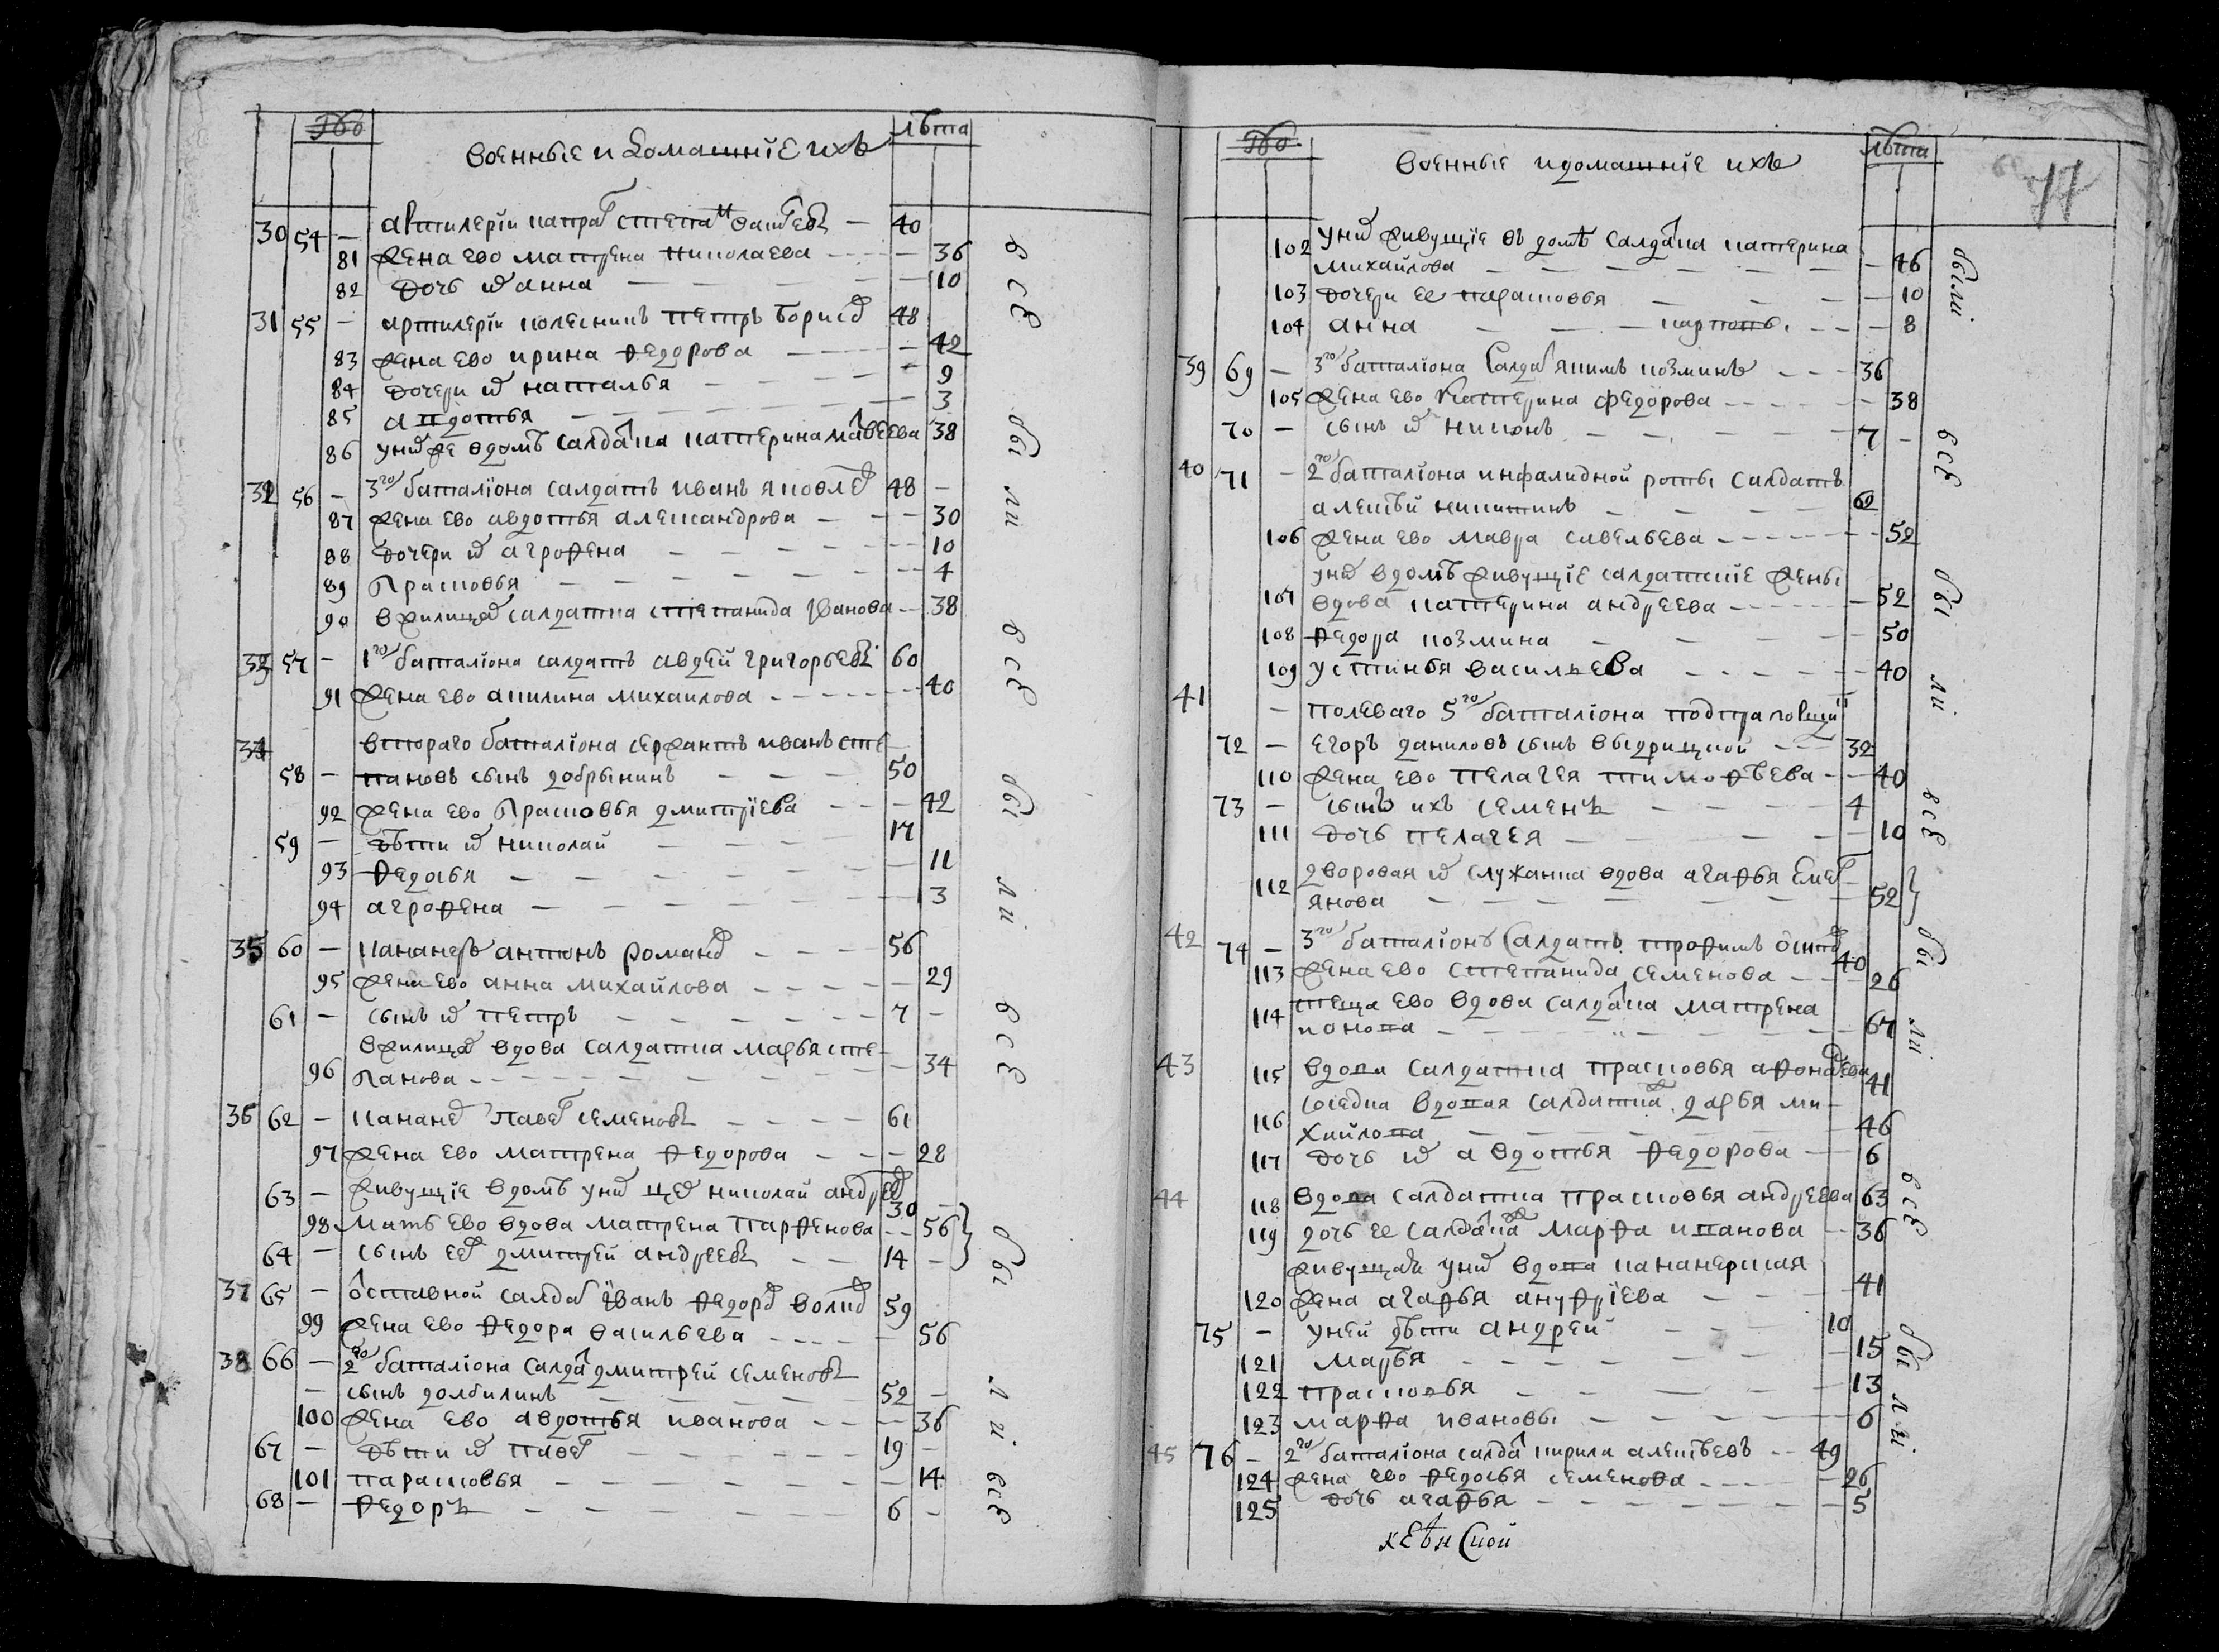 военные и домашнїе ихъ
лѣта
30 54 – артилерїи капрал степан – 40
81 жена ево матрена николаева – 36
82 дочь их анна – 10
31 55 – артилерїи колесникъ петръ борисов 48
83 жена ево ирина федорова – 42
84 дочери их наталья – 9
85 авдотья – 3
86 домѣ салдатка катерина матвеева 38
32 56 – 3го баталїона салдатъ иванъ яковлев 48 –
87 жена ево авдотья александрова – 30
88 дочери их агрофена – 10
89 прасковья – 4
90 вжилищах салдатка степанида иванова – 38
33 57 – 1го баталїона салдатъ авдей григорьевъ 60
91 жена ево акилина михаилова – 40
34 втораго баталїона сержантъ иванъ сте–
58 – пановъ сынъ добрынинъ – 50
92 жена ево прасковья дмитрїева – 42
59 – дѣти их николай – 17
93 федосья – 11
94 агрофена – 3
35 60 – канонеръ антонъ романов – 56
95 жена ево анна михайлова – 29
61 – сынъ их петръ – 7 –
вжилищах вдова салдатка марья сте–
96 панова – 34
36 62 – канонер павел семеновъ – 61
97 жена ево матрена федорова – 28
63 – живущїе вдомѣ уних николай андреев 30
98 мать ево вдова матрена парфенова – 56
64 – сынъ ее дмитрей андреевъ – 14 –
37 65 – оставной салдат иванъ федоров волков 59
99 жена ево федора васильева – 56
38 66 – 2го баталїона салдат дмитрей семеновъ
– сынъ долбилинъ – 52 –
100 жена ево авдотья иванова – 36
67 – дѣти их павел – 19 –
101 парасковья – 14
68 – федоръ – 6 –
всѣ
были
всѣ
были
всѣ
были
всѣ
военные и домашнїе ихъ
лѣта
77
102 уних живущїе въ домѣ салдатка катерина
михайлова – 46
103 дочери ее парасковья – 10
104 анна – 8
39 69 – 3го баталїона салдат якимъ козминъ – 36
105 жена ево катерина федорова – 38
70 – сынъ их никонъ – 7 –
40 71 – 2го баталїона инфалидной роты салдатъ
алексѣй никитинъ – 62
106 жена ево мавра савельева – 52
уних вдомѣ живущїе салдатскїе жены
107 вдова катерина андреева – 52
108 федора козмина – 50
109 устинья васильева – 40
41 – полеваго 5го баталїона подпрапорщик
72 – егоръ даниловъ сынъ – 32
110 жена ево пелагея тимофѣева – 40
73 – сынъ ихъ семенъ – 4
111 дочь пелагея – 10
112 дворовая их служанка вдова агафья емел–
янова – 52
42 74 – 3го баталїонъ салдатъ трофимъ осипов 40
113 жена ево степанида семенова – 26
114 теща ево вдова салдатка матрена
– 67
43 115 вдова салдатка прасковья афонасева 41
116 соседка вдовая салдатка дарья ми–
хайлова – 46
117 дочь их авдотья федорова – 6
44 118 вдова салдатка прасковья андреева 63
119 дочь ее салдатка марфа иванова – 36
живущая уних вдова канонерская
120 жена агафья ануфрїева – 41
75 – уней дѣти андрей – 10
121 марья – 15
122 прасковья – 13
123 марфа ивановы – 6
45 76 – 2го баталїона салдат кирила алексѣевъ – 49
124 жена ево федосья семенова – 26
125 дочь агафья – 5
были
всѣ
были
всѣ
были
всѣ
были